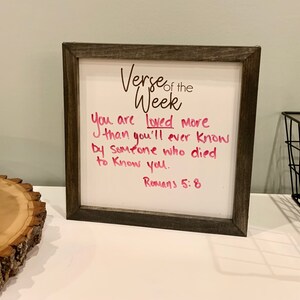 Verse of the
Week
You are loved more
than you'll ever know
by someone who died
to know you.
Romans 5:8